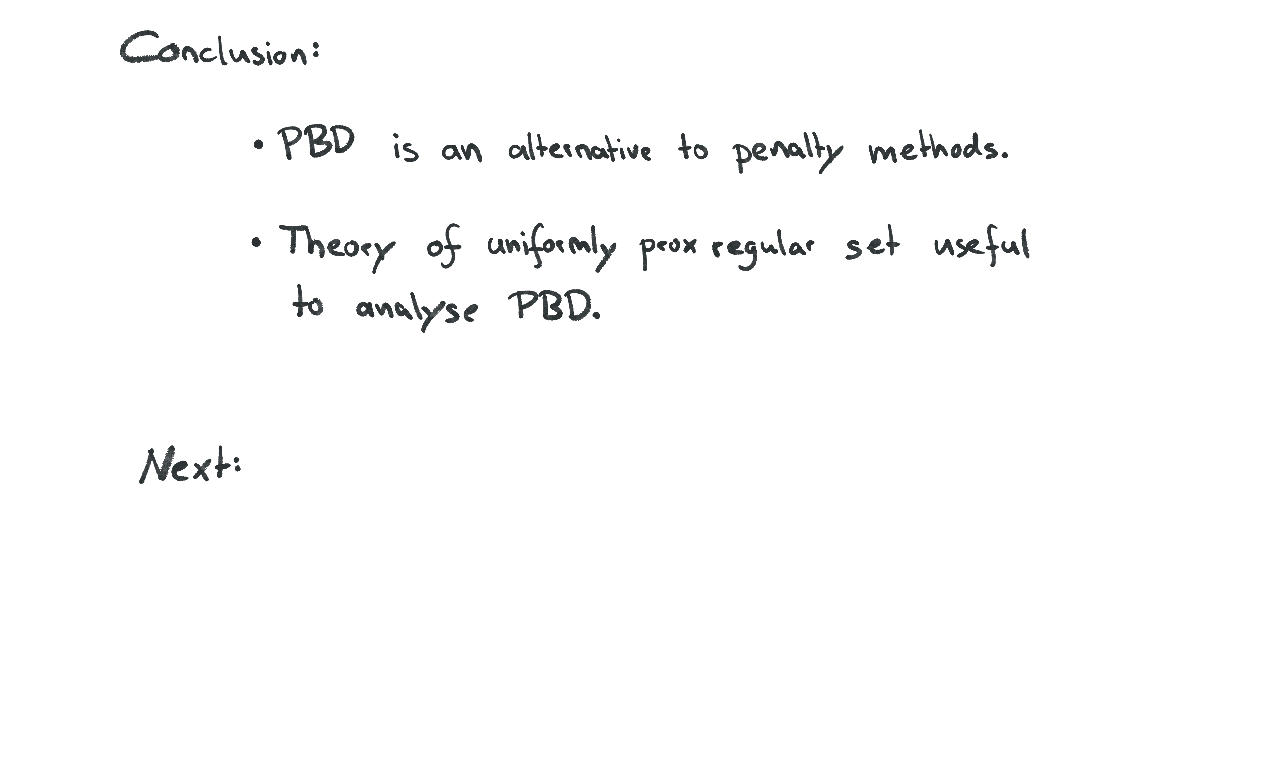 Conclusion:
• PBD is an alternative to penalty methods.
• Theory of uniformly prox regular set useful
to analyse PBD.
Next: